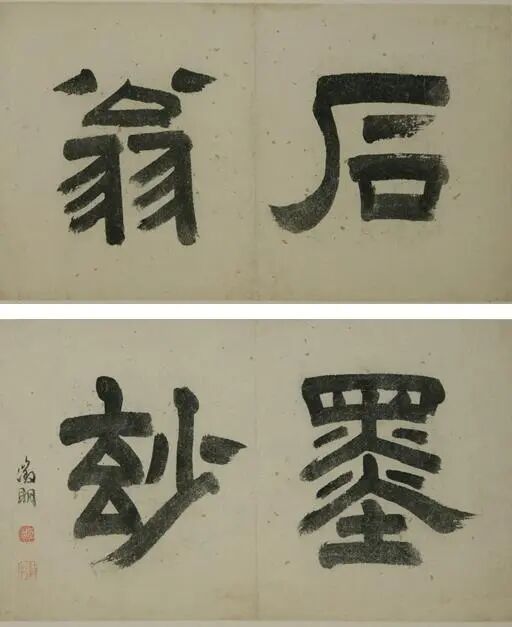 石翁
墨玅
徵明